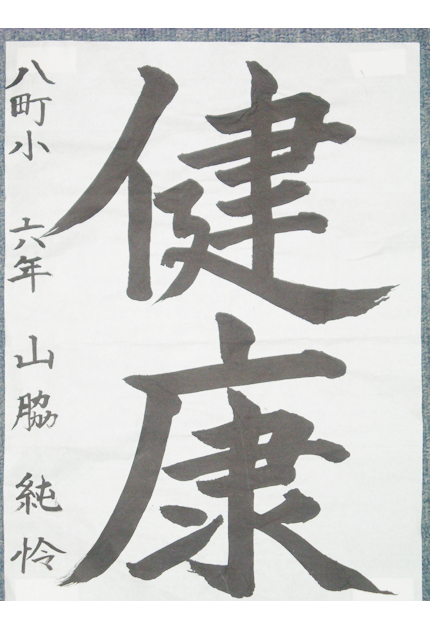 健康
八町小 六年 山脇 純怜